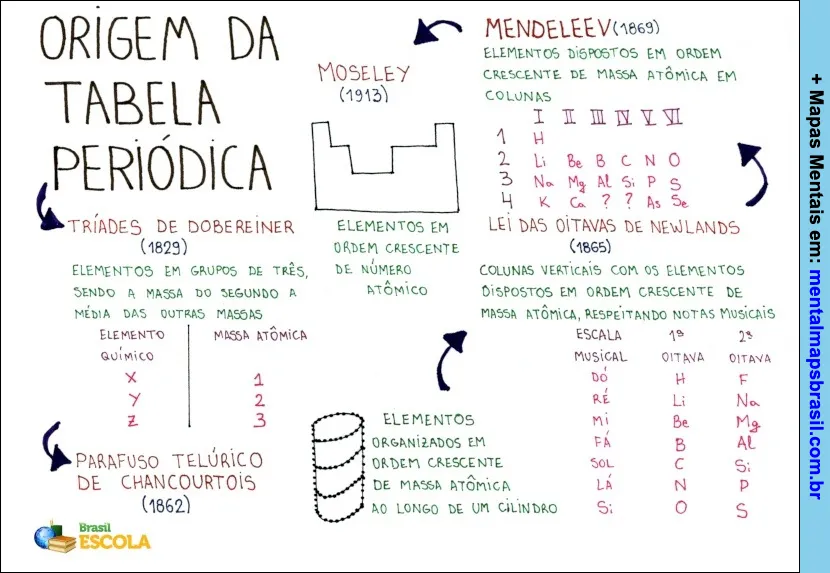 ORIGEM DA
TABELA
PERIÓDICA
TRÍADES DE DOBEREINER
(1829)
ELEMENTOS EM GRUPOS DE TRÊS,
SENDO A MASSA DO SEGUNDO A
MÉDIA DAS OUTRAS MASSAS
ELEMENTO QUÍMICO MASSA ATÔMICA
X 1
Y 2
Z 3
PARAFUSO TELÚRICO
DE CHANCOURTOIS
(1862)
ELEMENTOS
ORGANIZADOS EM
ORDEM CRESCENTE
DE MASSA ATÔMICA
AO LONGO DE UM CILINDRO
LEI DAS OITAVAS DE NEWLANDS
(1865)
COLUNAS VERTICAIS COM OS ELEMENTOS
DISPOSTOS EM ORDEM CRESCENTE DE
MASSA ATÔMICA, RESPEITANDO NOTAS MUSICAIS
ESCALA 1ª 2ª
MUSICAL OITAVA OITAVA
DÓ H F
RÉ Li Na
Mi Be Mg
FÁ B Al
SOL C Si
LÁ N P
Si O S
MENDELEEV (1869)
ELEMENTOS DISPOSTOS EM ORDEM
CRESCENTE DE MASSA ATÔMICA EM
COLUNAS
I II III IV V VI
1 H
2 Li Be B C N O
3 Na Mg Al Si P S
4 K Ca ? ? As Se
MOSELEY
(1913)
ELEMENTOS EM
ORDEM CRESCENTE
DE NÚMERO
ATÔMICO
Brasil
ESCOLA
+ Mapas Mentais em: mentalmapsbrasil.com.br